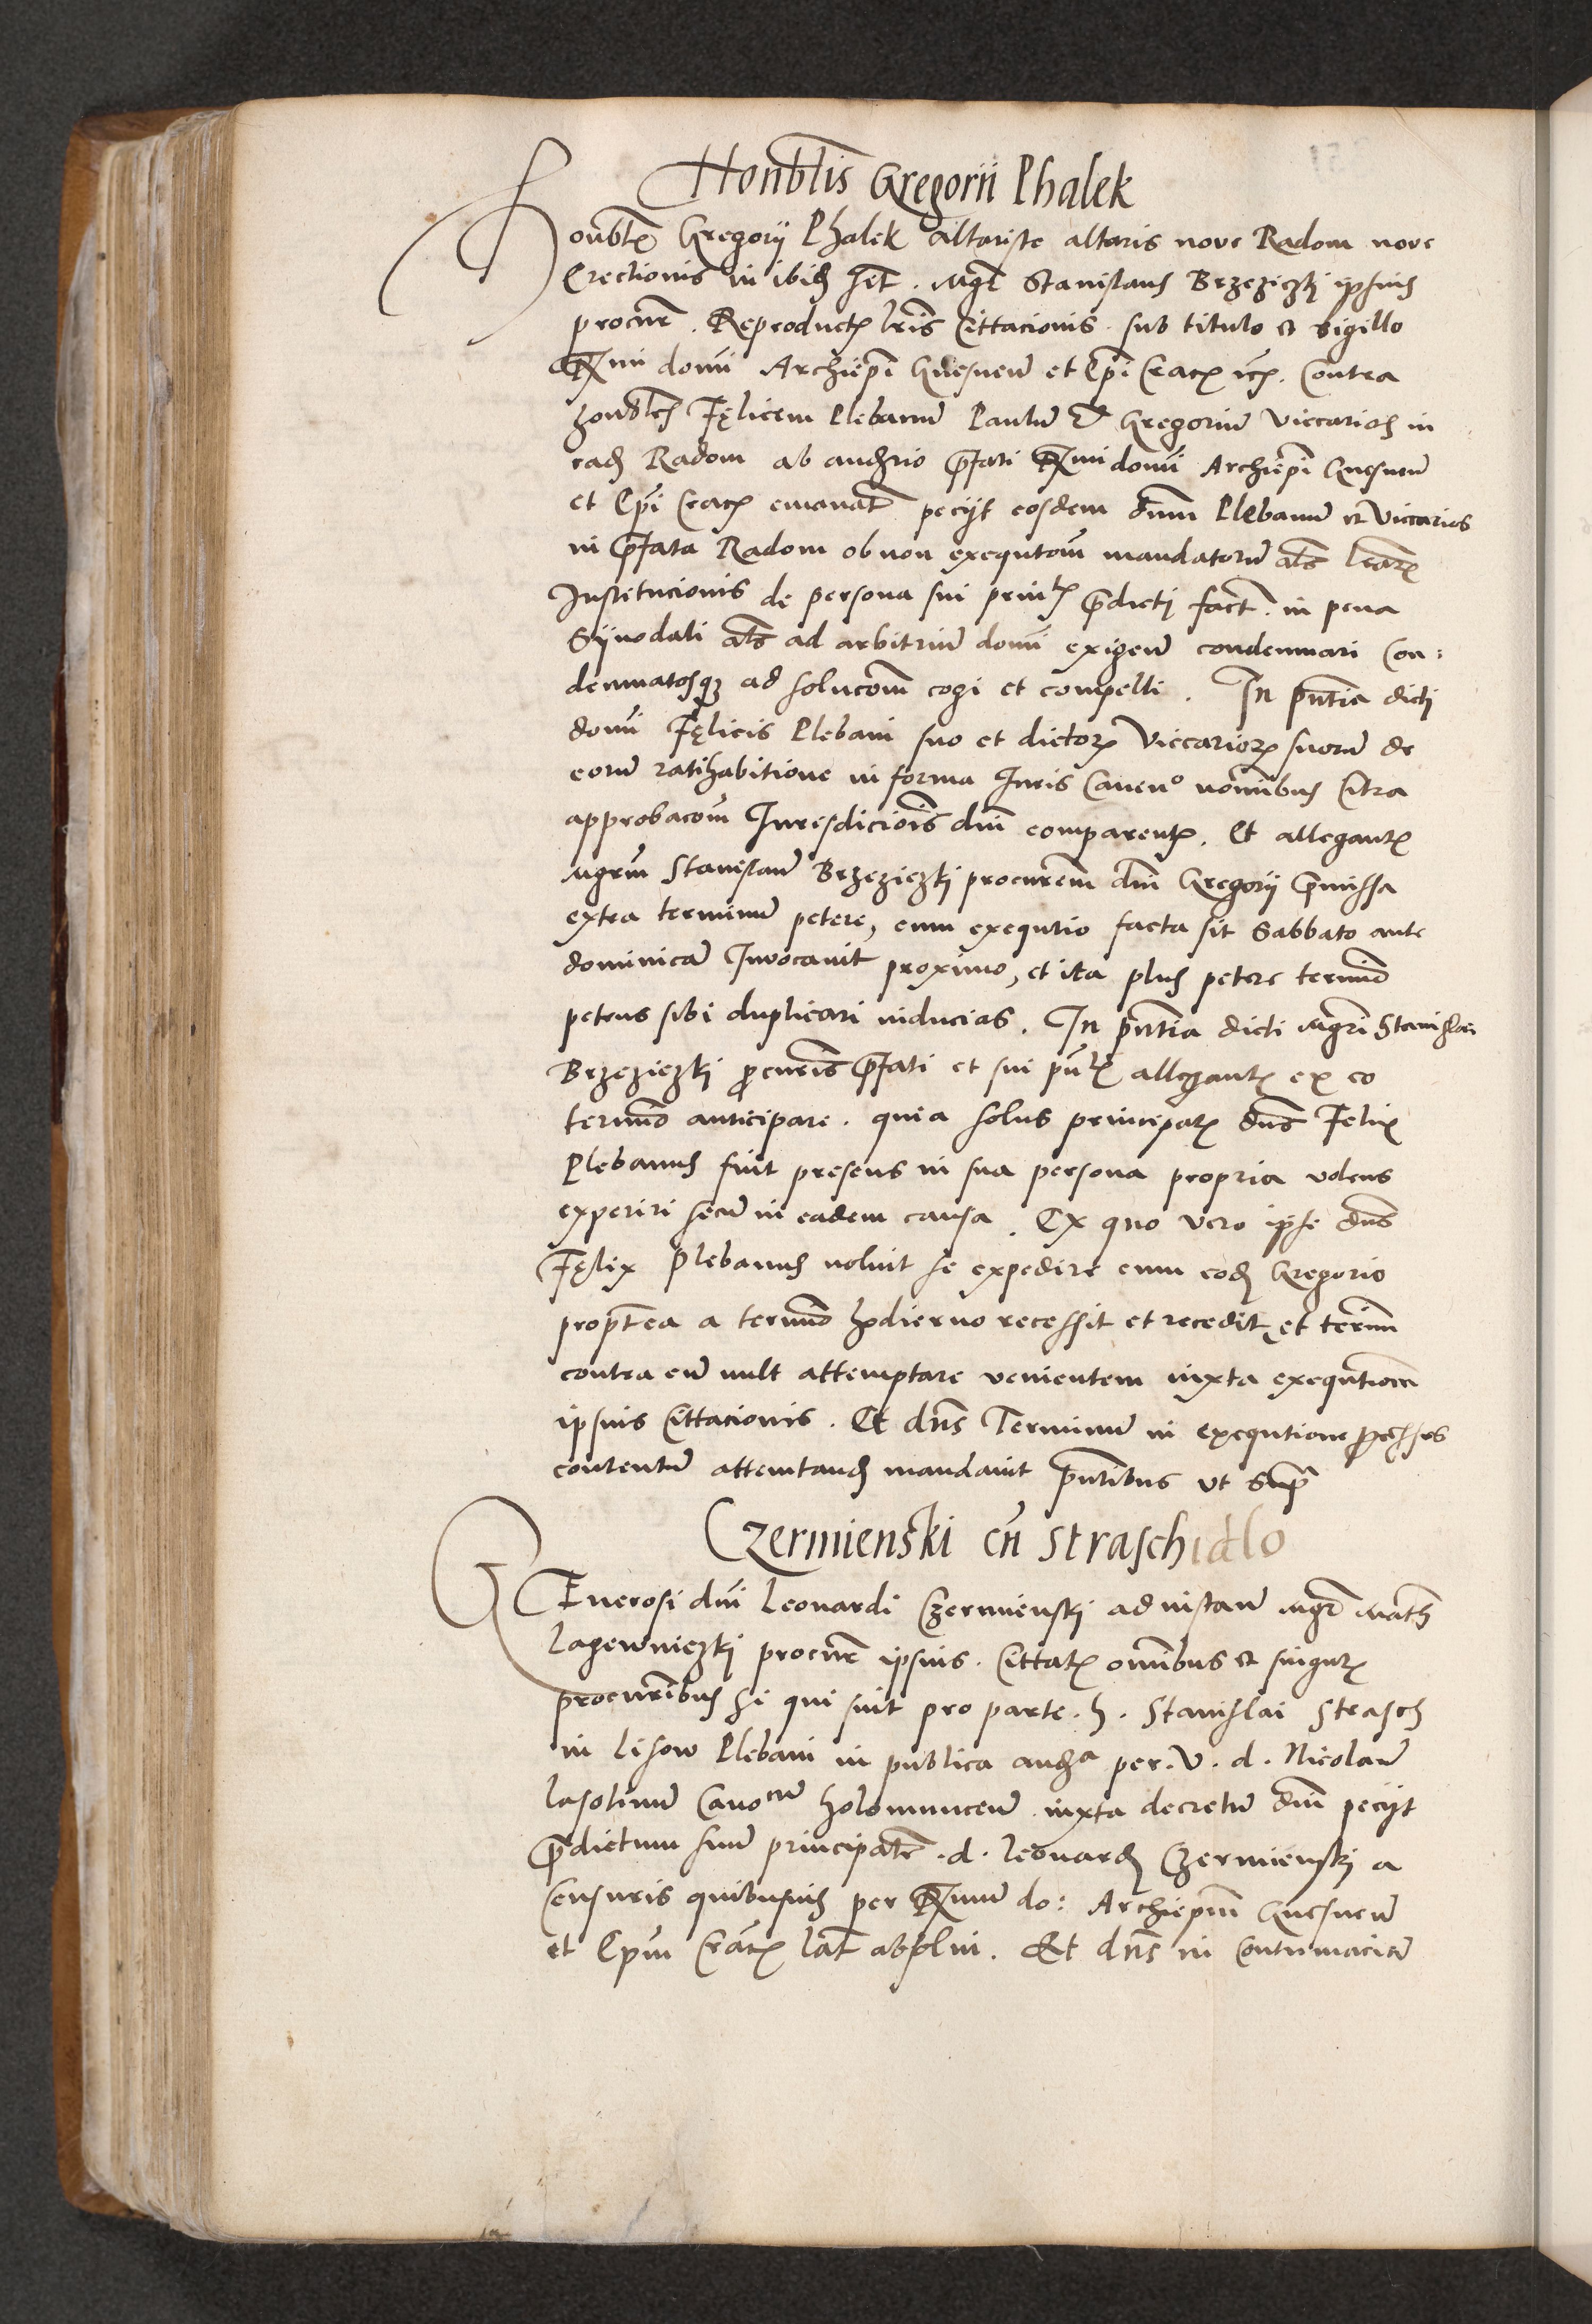 Honbl̃is Gregorii Phalek
Honblꝭ Gregorij Phalek altariste altaris nove Radom nove
Erectionis in ibidꝫ sit̃. Mgr̃ Stanislaus Brzeziczkj ipsius
procur̃. Reproductꝭ lr̃is Cittacionis sub titulo et sigillo
Rx̃mi domĩ Archiep̃i Gnesneñ et Ep̃i Cracꝭ etcꝭ. Contra
honbl̃es Fęlicem Plebanũ Paulũ & Gregoriũ Viccarios in
eadꝫ Radom ab audrio p̃fati Rx̃mi domĩ Archiep̃i Gnesneñ
et Ep̃i Cracꝭ emanat̃ pecijt eosdem dñm Plebanũ et Viccarios
in p̃fata Radom ob non exequtom̃ mandatorũ al̃s lr̃arꝭ
Institucionis de persona sui prinlꝭ p̃dictj fact̃. in pena
Sijnodali al̃s ad arbitriũ domĩ exigeñ condemnari Con:
demnatosqꝫ ad solucom̃ cogi et compelli. In pñtia dicti
domĩ Fęlicis Plebani suo et dictorꝭ Viccariorꝭ suorũ de
eorũ ratihabitione in forma Juris Caueno nomĩbus Citra
approbacom̃ Jurisdicioĩs dñi comparentꝭ. Et allegantꝭ
Mgr̃m Stanislaũ Brzeziczkj procurem̃ dñi Gregorij p̃missa
extra terminũ petere, cum exequtio facta sit Sabbato ante
dominicã Inuocauit proximo, et ita plus petere termĩo
petens sibi duplicari inducias. In pñtia dicti Mgr̃i Stanislai
Brzeziczkj procuris̃ p̃fati et sui pñlꝭ allegantꝭ ex eo
termĩo anticipare. quia solus principatꝭ dñs Felix
Plebanus fuit presens in sua persona propria volens
experiri secũ in eadem causa. Ex quo vero ipse dñs
Fęlix Plebanus noluit se expedire cum eodꝫ Gregorio
propt̃ea a termĩo hodierno recessit et recedit et term̃
contra eũ vult attemptare venientem iuxta exequtiom̃
ipsius Cittacionis. Et dñs Terminũ in exequtione processus
contentũ attemtandꝫ mandauit pñtibus ut Sup̃
Czermienski cũ Straschidlo
GEnerosi dñi Leonardi Czermienskj ad instañ Mgr̃ Math̃
Lagewniczkj procur̃ ipsius. Cittatꝭ omĩbus et singulꝭ
procurĩbus si qui sint pro parte. h. Stanislai Strasch
in Lisow Plebani in publica audꝫa per. V. d. Nicolaũ
Lasotinũ Canocum holomuncen̄ iuxta decretũ dñi pecijt
p̃dictum suũ principalẽ. d. Leonardꝫ Czermienskj a
Censuris quibusuis per Rx̃mum do: Archiepm̃ Gnesneñ
et Epm̃ Crac̃ꝭ lat̃ absolui. Et dñs in contumaciã